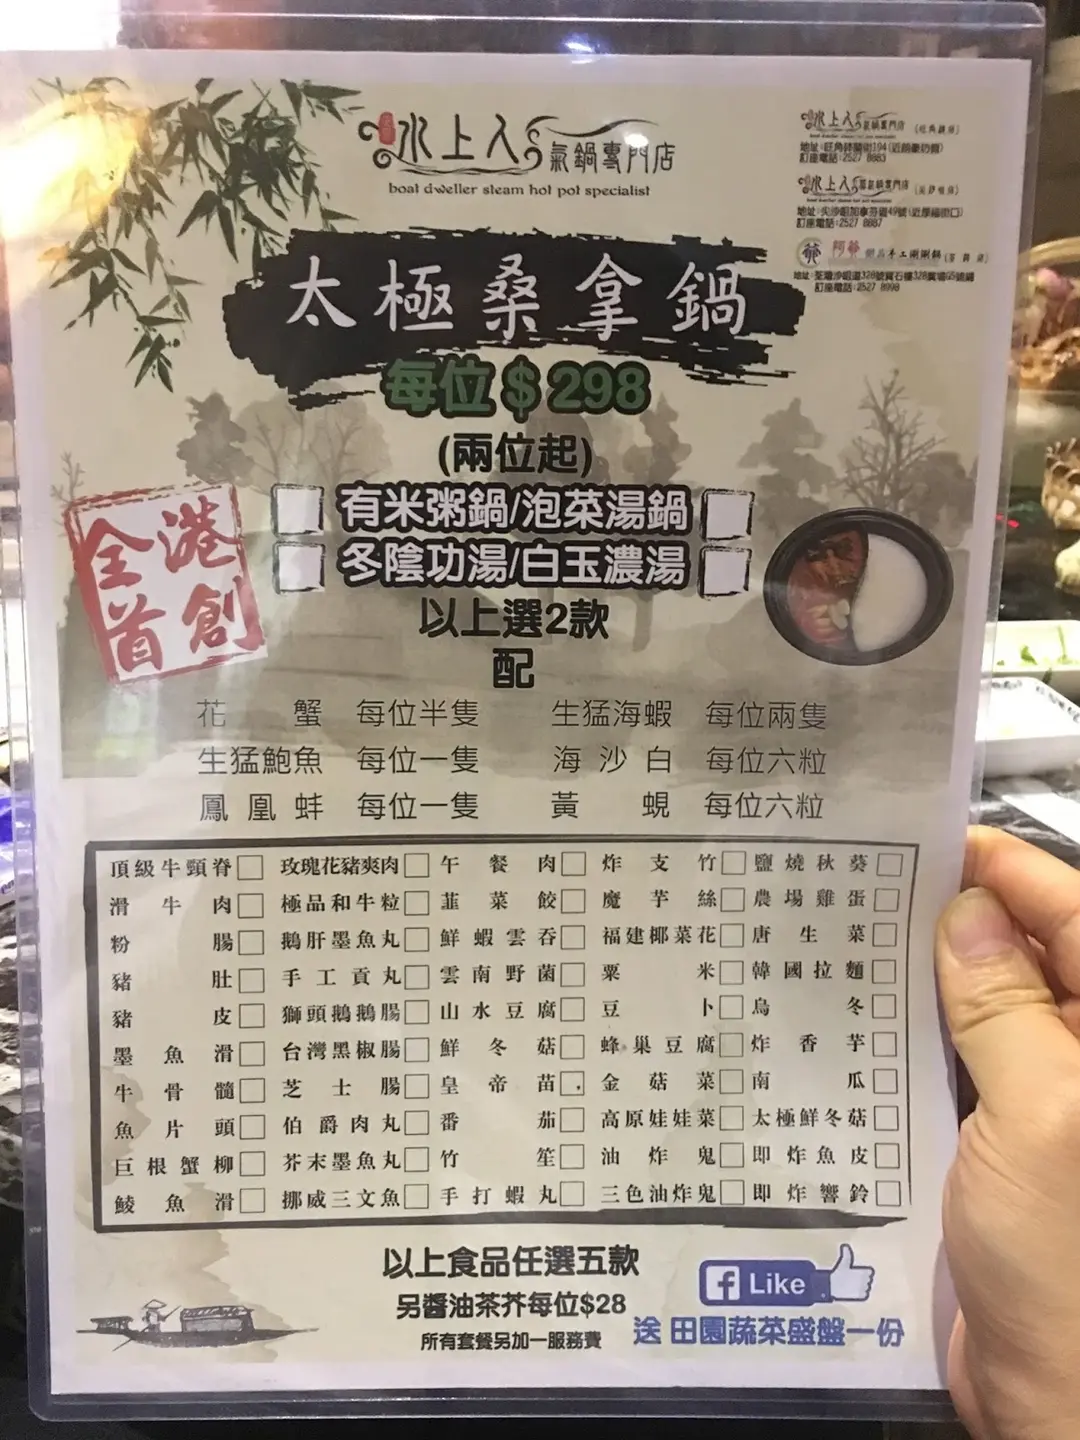 水上人 氣鍋專門店
boat dweller steam hot pot specialist
水上人 氣鍋專門店 (旺角總店)
訂座電話:2527 8883
水上人 氣鍋專門店
boat dweller steam hot pot specialist
地址:尖沙咀加拿芬道49號(近厚福街口)
訂座電話:2527 8887
阿爺
地址:荃灣沙咀道328號寶石樓328廣場G5號鋪
訂座電話:2527 8998
太極桑拿鍋
每位$298
(兩位起)
有米粥鍋/泡菜湯鍋
冬陰功湯/白玉濃湯
以上選2款
配
全港首創
花蟹 每位半隻 生猛海蝦 每位兩隻
生猛鮑魚 每位一隻 海沙白 每位六粒
鳳凰蚌 每位一隻 黃蜆 每位六粒
頂級牛頸脊 玫瑰花豬爽肉 午餐肉 炸支竹 鹽燒秋葵
滑牛肉 極品和牛粒 韮菜餃 魔芋絲 農場雞蛋
粉腸 鵝肝墨魚丸 鮮蝦雲吞 福建椰菜花 唐生菜
豬肚 手工貢丸 雲南野菌 粟米 韓國拉麵
豬皮 獅頭鵝鵝腸 山水豆腐 豆卜 烏冬
墨魚滑 台灣黑椒腸 鮮冬菇 蜂巢豆腐 炸香芋
牛骨髓 芝士腸 皇帝苗 金菇菜 南瓜
魚片頭 伯爵肉丸 番茄 高原娃娃菜 太極鮮冬菇
巨根蟹柳 芥末墨魚丸 竹笙 油炸鬼 即炸魚皮
鯪魚滑 挪威三文魚 手打蝦丸 三色油炸鬼 即炸響鈴
以上食品任選五款
另醬油茶芥每位$28
所有套餐另加一服務費
f Like
送 田園蔬菜盛盤一份